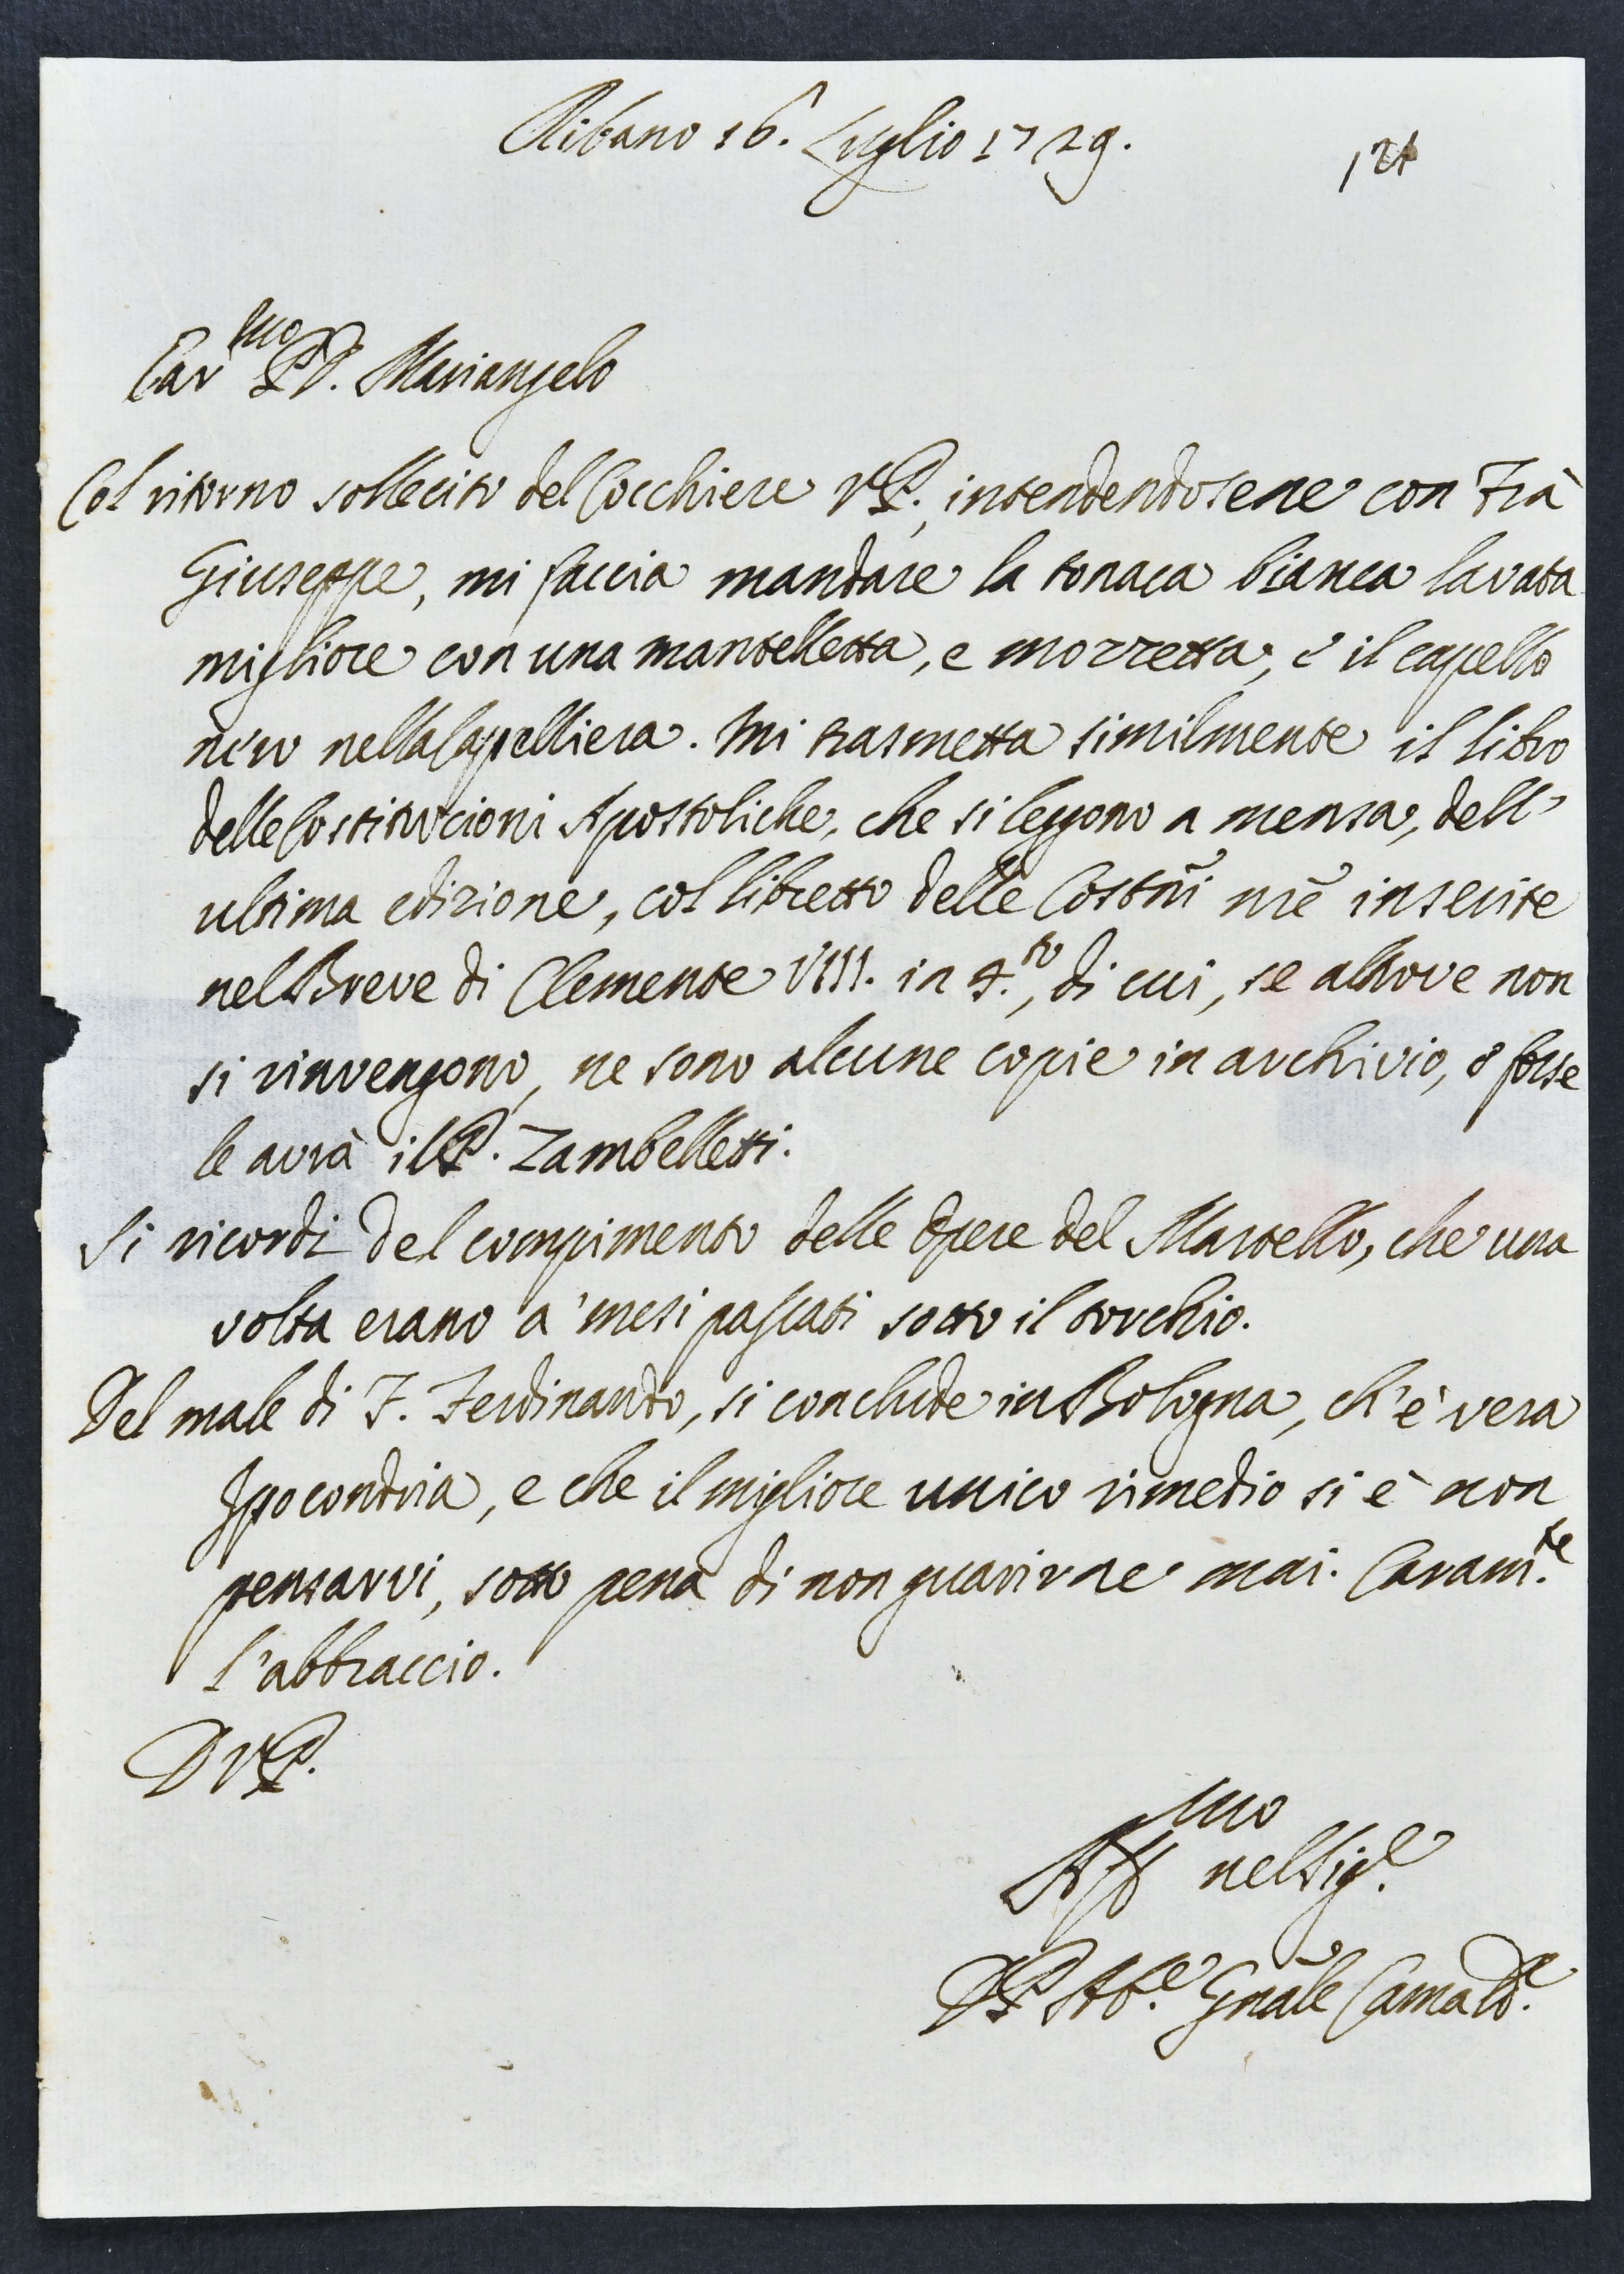 Ribano 16. Luglio 1729.
121
Car.mo P.D. Mariangelo
Col ritorno sollecito del Cocchiere V.P., intendendosene con Frà
Giuseppe, mi faccia mandare la tonaca bianca lavata
migliore con una mantelletta, e mozzetta, e il capello
nero nella Capelliera. Mi trasmetta similmente il libro
delle Costitucioni Apostoliche, che si leggono a mensa, dell'
ultima edizione, col libretto delle Costñi nrẽ inserite
nel Breve di Clemente VIII. in 4.to, di cui, se altrove non
si rinvengono, ne sono alcune copie in archivio, ò forse
le avrà il P. Zambelletti.
Si ricordi del compimento delle Opere del Martello, che una
volta erano a' mesi passati sotto il torchio.
Del male di F. Ferdinando, si conclude in Bologna, ch'è vera
Ipocondria, e che il migliore unico rimedio si è non
pensarvi, sotto pena di non guarirne mai. Caram.te
l'abbraccio.
D V.P.
Aff.mo nel Sig.e
D.P. Ab.e Gñale Camald.e